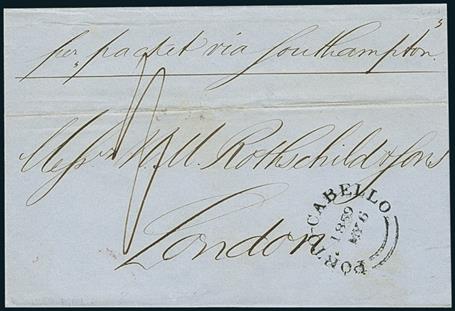 per „packet via Southampton"
1/
Messrs N. M. Rothschild & Sons
London
PORTO-CABELLO
1859
MY 6